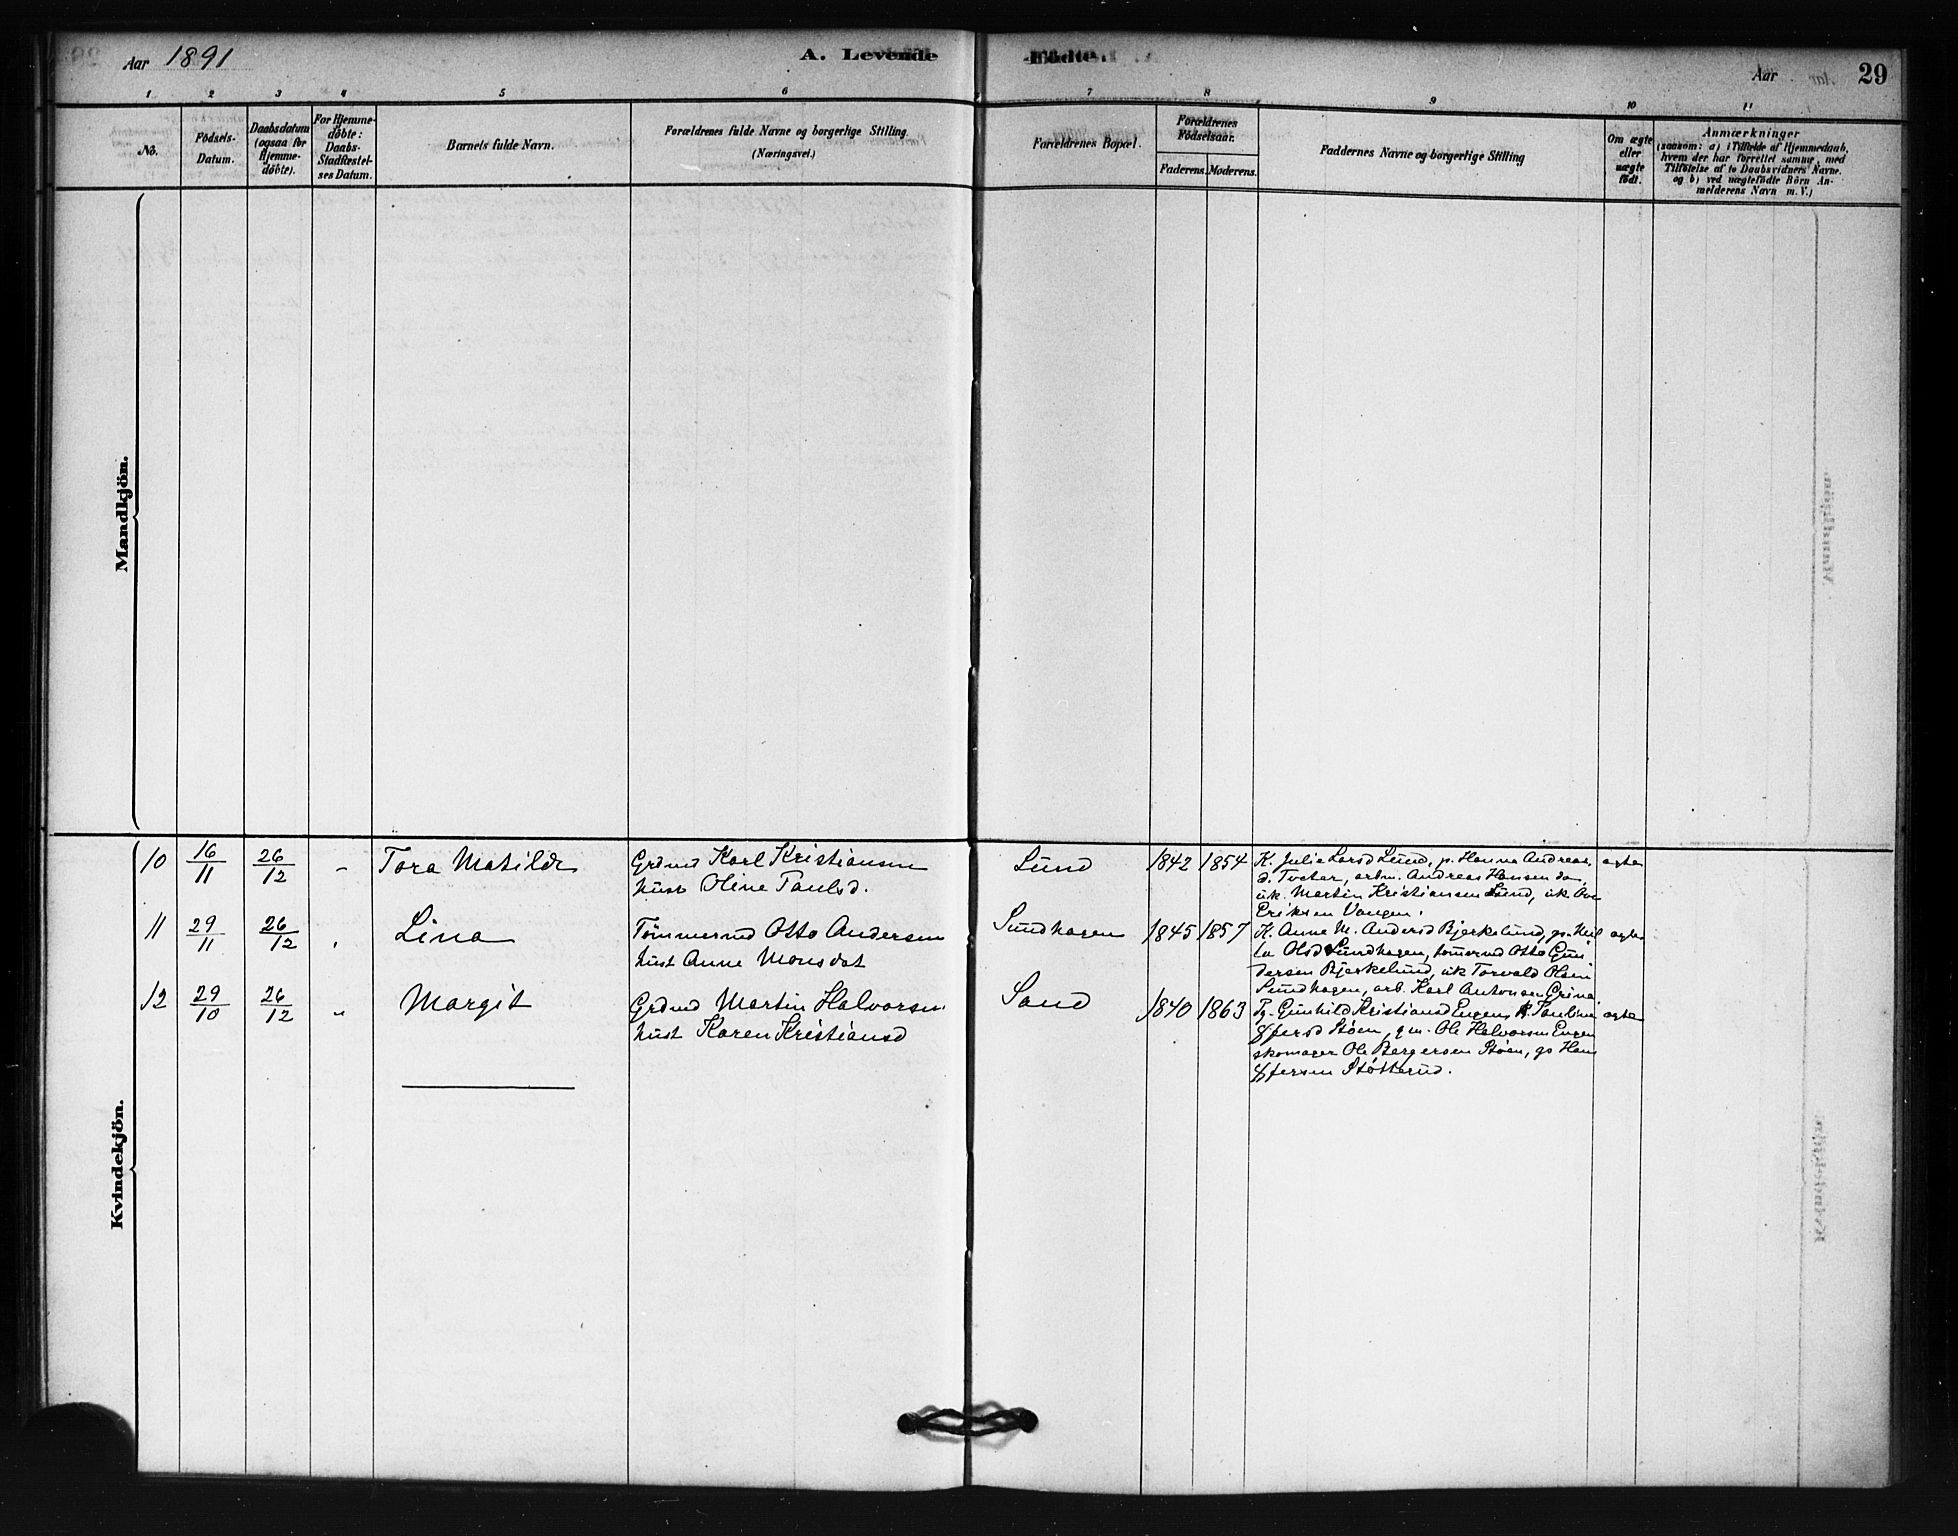 Aar 1891
A. Levende
Fødte.
Aar
29
1
2
3
4
5
6
7
8
9
10
11
No.
Födsels-
Datum.
Daabsdatum
(ogsaa for
Hjemme-
døbte).
For Hjemme-
døbte:
Daabs-
Stadfæstel-
ses Datum.
Barnets fulde Navn.
Forældrenes fulde Navne og borgerlige Stilling.
(Næringsvei.)
Forældrenes Bopæl.
Forældrenes
Födselsaar.
Faderens.
Moderens.
Faddernes Navne og borgerlige Stilling
Om ægte
eller
uægte
født.
Anmærkninger
(saasom: a) i Tilfælde af Hjemmedaab,
hvem der har forrettet samme, med
Tilføielse af to Daabsvidners Navne.
og b) ved uægtefødte Börn An-
melderens Navn m. V.)
Mandkjön.
Kvindekjön.
10 16/11 26/12 - Tora Matilde
Grdmd Karl Kristiansen
hust Oline Paulsd.
Lund
1842 1854
K. Julie Larsd Lund, p. Hanna Andreas.
d. Tveter, arbm. Andreas Hansen do,
uk. Martin Kristiansen Lund, uk Ove
Eriksen Vangen.
ægte
11 29/11 26/12 Lina
Tömmermd Otto Andersen
hust Anne Monsdat
Sundhagen
1845 1857
K. Anne M. Andersd Bjerkelund, ps. Hel
Olsd Sundhagen, tömermd Otto Gun
dersen Bjerkelund, uk Torvald Olsen
Sundhagen, arb. Karl Antonsen Grina
ægte
12 29/10 26/12 " Margit
Grdmd Martin Halvorsen
hust Karen Kristiansd
Sand
1840 1863
Pg. Gunhild Kristiansd Engen, P. Pauline
Støen, gm. Ole Halvorsen Engen
skomager Ole Bergersen Støen, gs Hans
Støtterud.
ægte